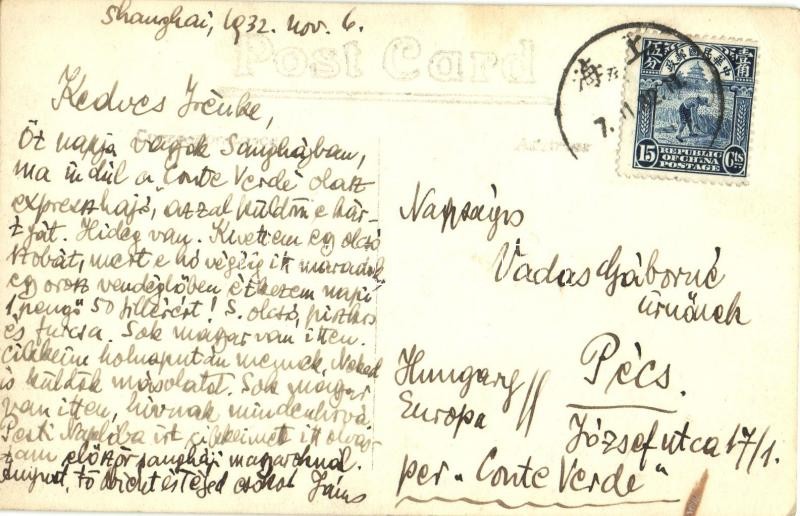 Shanghai, 1932. nov. 6.
Post Card
Kedves Irénke,
Öt napja vagyok Sanghájban,
ma indul a "Conte Verde" olasz
expresszhajó, azzal küldöm e kár-
tyát. Hideg van. Kivettem egy olcsó
szobát, mert e hó végéig itt maradok
egy orosz vendéglőben étkezem napi
1 pengő 50 fillérért! S. olcsó, piszkos
és furcsa. Sok magyar van itten.
Cikkeim holnapután mennek. Neked
is küldök másolatot. Sok magyar
van itten, hívnak mindenhová.
Pesti Naplóba írt cikkeimet itt olvas-
tam először sanghaji magyaroknál.
csókol János
上海
7.11.32.
中華民國郵政
壹角
伍分
15 Cts
REPUBLIC
OF CHINA
POSTAGE
Address
Nagyságos
Vadas Gáborné
úrnőnek
Pécs.
Hungary
Europa
József utca 17/1.
per "Conte Verde"